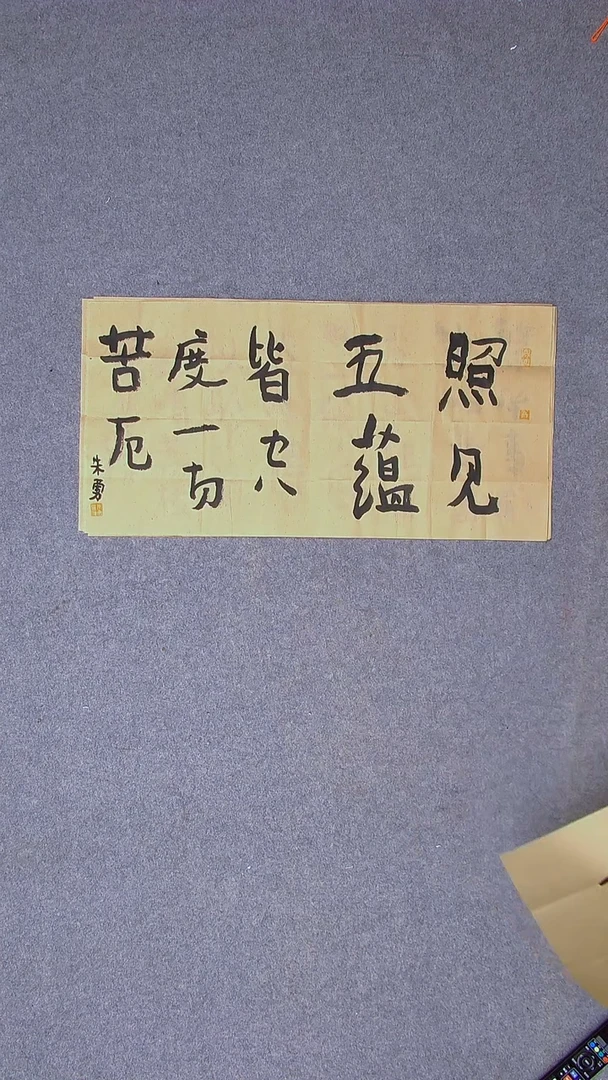 照见
五蕴
皆空
度一切
苦厄
朱勇